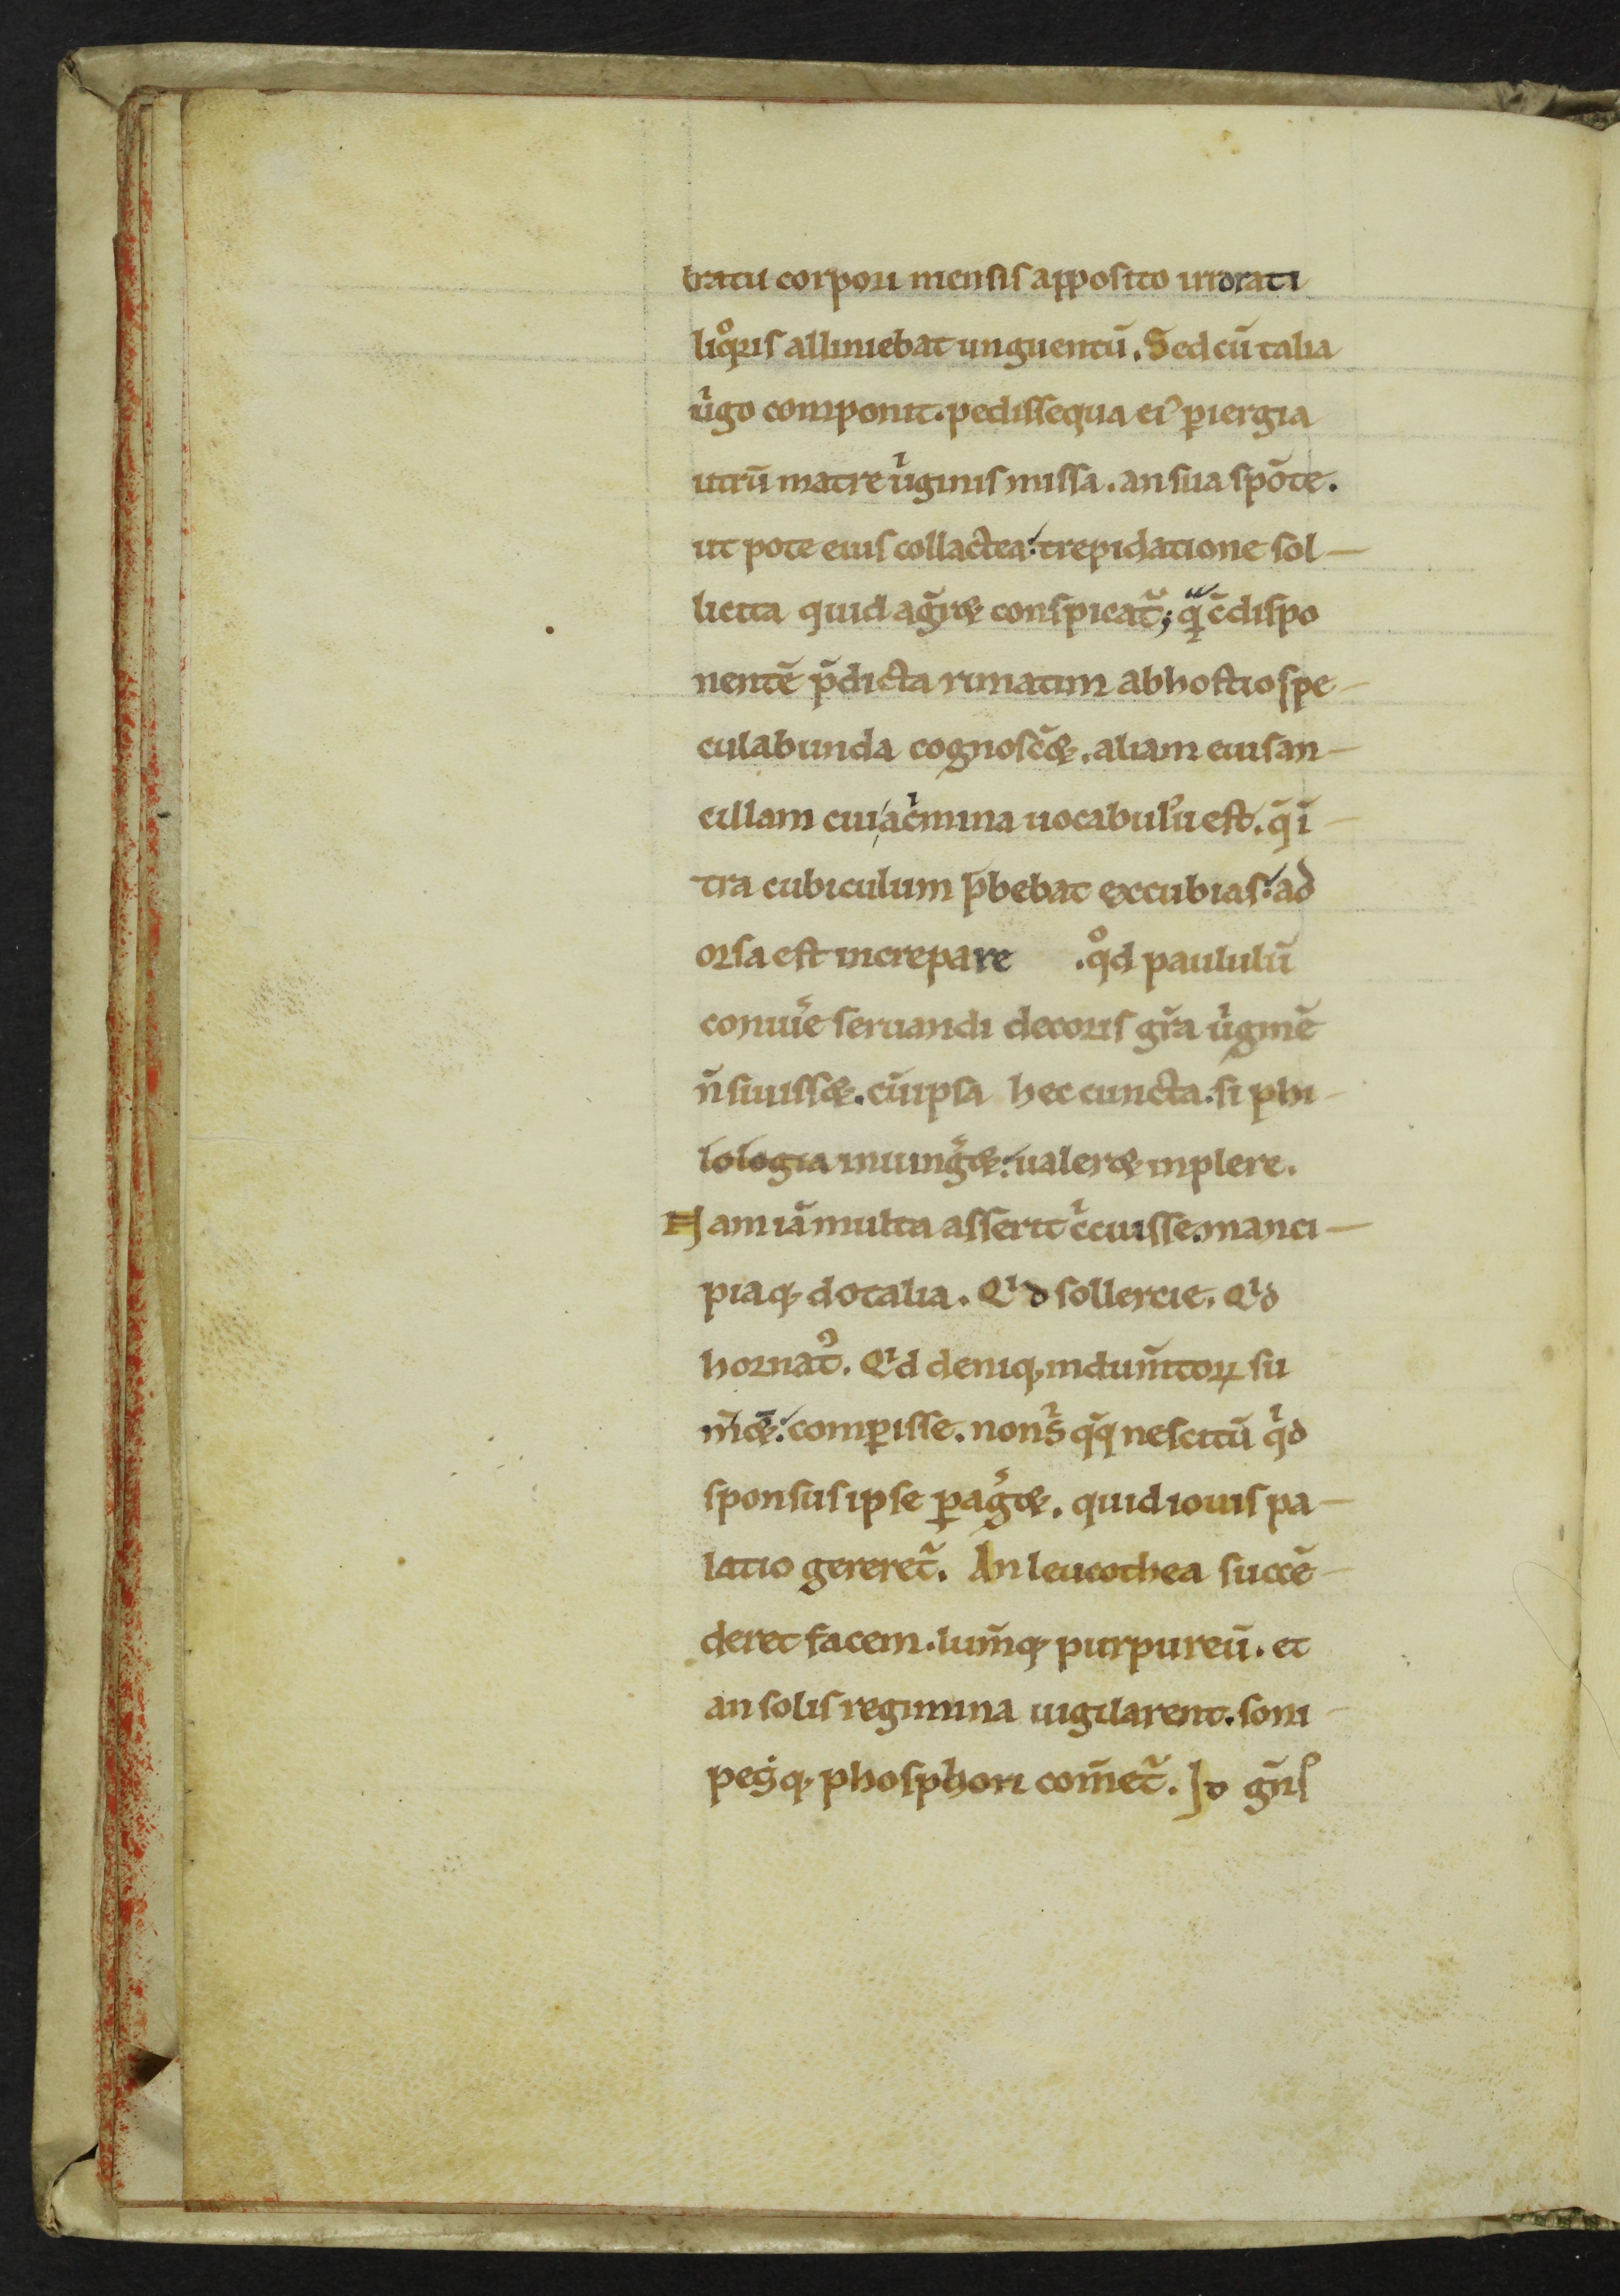 tratu corpori mensis apposito irrorati
liqͦris alliniebat unguentū. Sed cū talia
uͥgo componit. pedissequa eiꝰ ꝑiergia
utrū matre uͥginis missa. an sua spōte.
ut pote eius collactea: trepidatione sol-
licita quid ag̃r& conspicat᷑; qͥ c̄dispo
nentē p̄dicta rimatim ab hostio spe-
culabunda cognosc̃&. aliam eius an-
cillam cui ac̓mina uocabulū est. q̄ ī-
tra cubiculum p̄bebat excubias: ad
orsa est increpare .qͦd paululū
conuiũe seruandi decoris gr̄a uͥginē
n̄ siuiss&. cū ipsa hec cuncta. si phi-
lologia iniung̃&: ualer& inplere.
Nam iā multa asserit c̓cuisse. manci-
piaq; dotalia. Qͥd sollercie. Qͥd
hornatꝰ. Qͥd deniq; indum̄toꝝ su
m̄&: comꝑisse. non sͥ q̄q̄ nescitū qͥd
sponsus ipse ꝑag̃&. quid iouis pa-
latio gereret᷑. An leucothea succē-
deret facem. lum̄q; purpureū. et
an solis regimina uigilarent. soni-
pesq; phosphori com̄et᷑. Id gn̄s